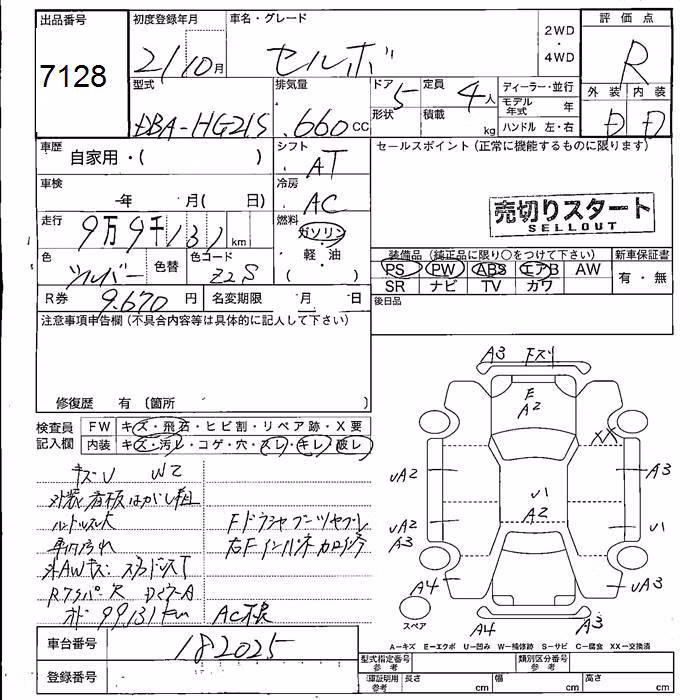 出品番号
7128
初度登録年月
21/10月
車名・グレード
セルボ
2WD
・
4WD
評価点
R
型式
DBA-HG21S
排気量
.660 CC
ドア
5
形状
定員
4人
積載
kg
ディーラー・並行
モデル年式 年
ハンドル 左・右
外装 内装
D D
車歴
自家用・( )
シフト
AT
セールスポイント(正常に機能するものに限ります)
車検
年 月( 日)
冷房
AC
売切りスタート
SELLOUT
走行
9万9千131 km
燃料
ガソリン
・
軽・油
色
シルバー
色替
色コード
Z2S
装備品(純正品に限り○をつけて下さい)
PS PW ABS エアB AW
SR ナビ TV カワ
新車保証書
有・無
R券
9.670円
名変期限 月 日
後日品
注意事項申告欄(不具合内容等は具体的に記入して下さい)
修復歴 有 (箇所 )
検査員
記入欄
FW キズ・飛石・ヒビ割・リペア跡・X要
内装 キズ・汚レ・コゲ・穴・スレ・キレ・破レ
キズU W2
外装看板はがし跡
ハンドルスレ大
車内汚れ
Fドウシャブーツヤブレ
右Fインパネカロ跡
RワイパーX
オド 99131km
AC不良
A3 Fスリ
E
A2
XX
UA2
A3
U1
A2
UA2
A3
U1
A4
UA3
スペア
A4
A3
A-キズ E-エクボ U-凹み W-補修跡 S-サビ C-腐食 XX-交換済
車台番号
182025
登録番号
型式指定番号
参考
類別区分番号
参考
車庫証明用
参考
長さ cm
幅 cm
高さ cm